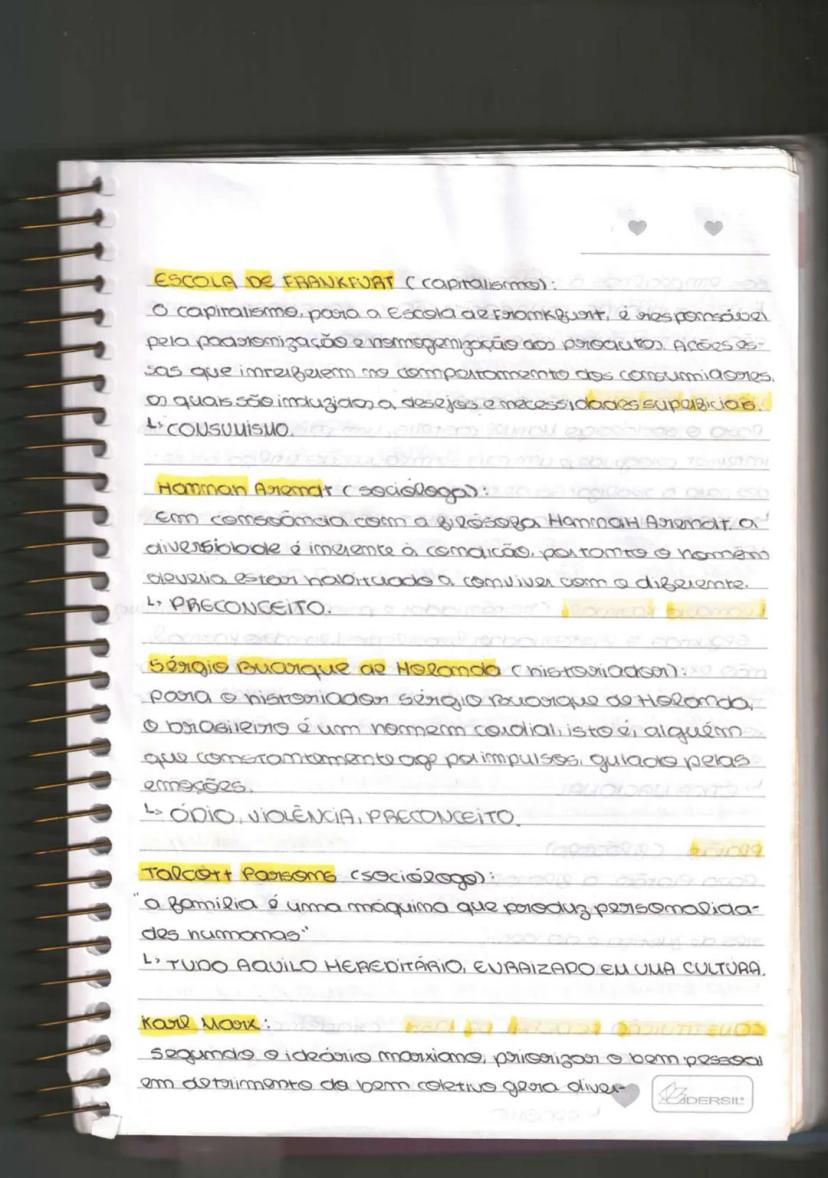 ESCOLA DE FRANKFURT (capitalismo):
O capitalismo, para a Escola de Frankfurt, é responsável
pela padronização e homogenização dos produtos. Ações es-
sas que interferem no comportamento dos consumidores,
os quais são induzidos a desejos e necessidades superficiais.
↳ CONSUMISMO.
Hannah Arendt (socióloga):
Em consonância com a filósofa Hannah Arendt, a
diversidade é inerente à condição, portanto o homem
deveria estar habituado a conviver com o diferente.
↳ PRECONCEITO.
Sérgio Buarque de Holanda (historiador):
para o historiador Sérgio Buarque de Holanda,
o brasileiro é um homem cordial, isto é, alguém
que constantemente age por impulsos, guiado pelas
emoções.
↳ ÓDIO, VIOLÊNCIA, PRECONCEITO.
Talcott Parsons (sociólogo):
"a família é uma máquina que produz personalida-
des humanas"
↳ TUDO AQUILO HEREDITÁRIO, ENRAIZADO EM UMA CULTURA.
Karl Marx:
segundo o ideário marxiano, priorizar o bem pessoal
em detrimento do bem coletivo gera diver-
IDERSIL